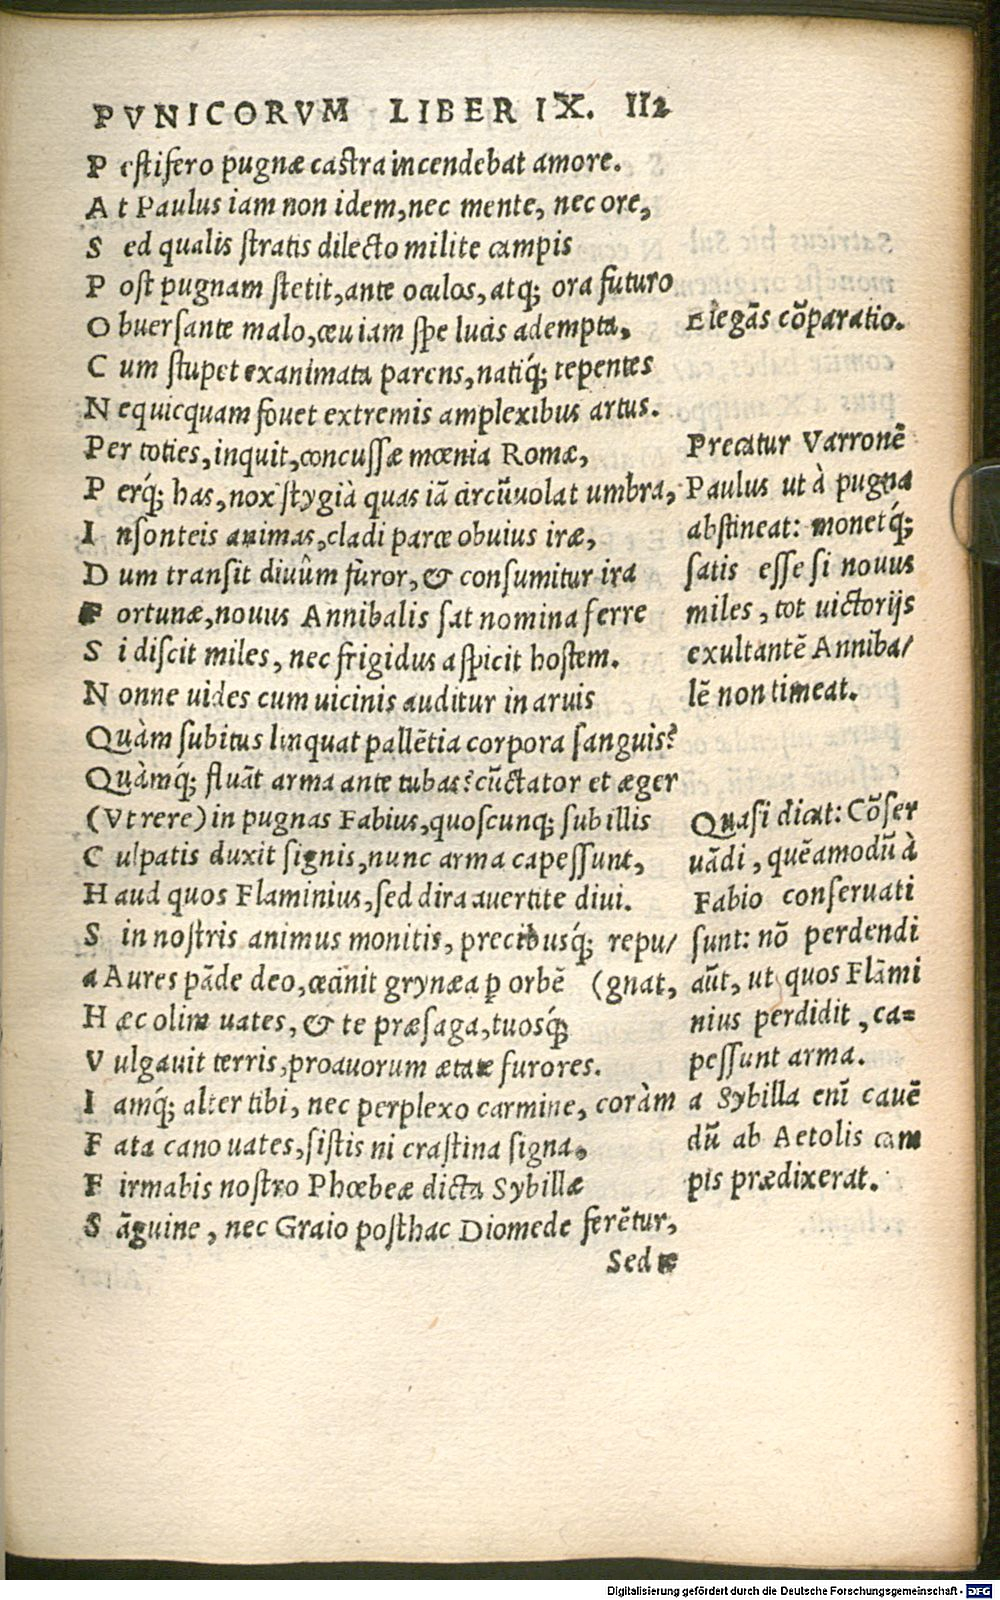 PVNICORVM LIBER IX. 112
Pestifero pugnæ castra incendebat amore.
At Paulus iam non idem, nec mente, nec ore,
Sed qualis stratis dilecto milite campis
Post pugnam stetit, ante oculos, atq; ora futuro
Obuersante malo, ceu iam spe lucis adempta,
Cum stupet exanimata parens, natiq́; tepentes
Nequicquam fouet extremis amplexibus artus.
Per toties, inquit, concussæ mœnia Romæ,
Perq́; has, nox stygià quas iā circūuolat umbra,
Insonteis animas, cladi parce obuius iræ,
Dum transit diuûm furor, & consumitur ira
Fortunæ, nouus Annibalis sat nomina ferre
Si discit miles, nec frigidus aspicit hostem.
Nonne uides cum uicinis auditur in aruis
Quàm subitus linquat pallētia corpora sanguis?
Quàmq́; fluāt arma ante tubas? cūctator et æger
(Vt rere) in pugnas Fabius, quoscunq; sub illis
Culpatis duxit signis, nunc arma capessunt,
Haud quos Flaminius, sed dira auertite diui.
Sin nostris animus monitis, precibusq́; repu/
a Aures pāde deo, cecinit grynæa p orbē (gnat,
Hæc olim uates, & te præsaga, tuosq́;
Vulgauit terris, proauorum ætate furores.
Iamq́; alter tibi, nec perplexo carmine, coràm
Fata cano uates, sistis ni crastina signa,
Firmabis nostro Phœbeæ dicta Sybillæ
Sāguine, nec Graio posthac Diomede ferētur,
Sed te
Elegās cōparatio.
Precatur Varronē
Paulus ut à pugna
abstineat: monetq́;
satis esse si nouus
miles, tot uictorijs
exultantē Anniba/
lē non timeat.
Quasi dicat: Cōser
uādi, quēamodū à
Fabio conseruati
sunt: nō perdendi
aūt, ut quos Flāmi
nius perdidit, ca=
pessunt arma.
a Sybilla enī cauē
dū ab Aetolis cam
pis prædixerat.
Digitalisierung gefördert durch die Deutsche Forschungsgemeinschaft - DFG